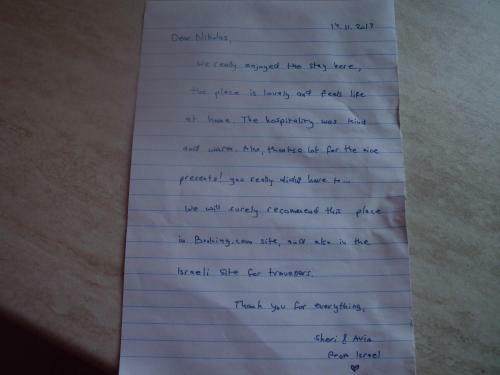 14.11.2018
Dear Nikolas,
We really enjoyed the stay here,
the place is lovely and feels like
at home. The hospitality was kind
and warm. Also, thanks a lot for the nice
presents! you really didn't have to...
We will surely recommend this place
in Booking.com site, and also in the
Israeli site for travelers.
Thank you for everything,
Sheri &
from Israel